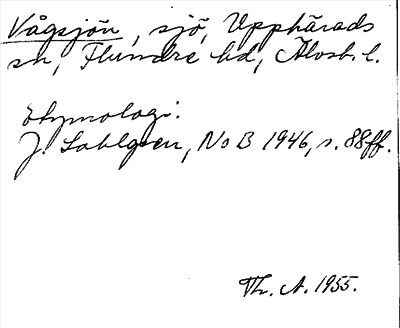 Vågsjön, sjö, Upphärads
sn, Flundre hd, Älvsb. l.
Etymologi:
J. Sahlgren, NoB 1946, s. 88ff.
Th. A. 1955.